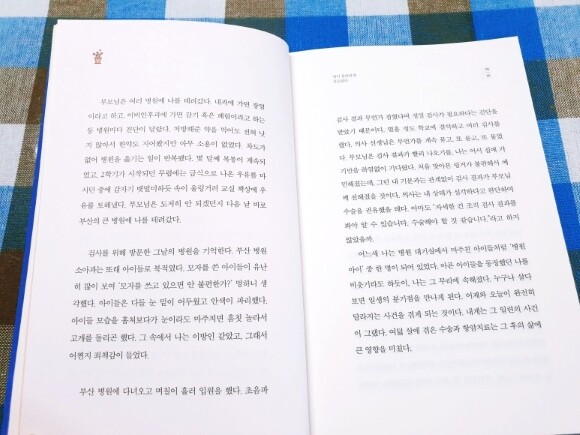 부모님은 여러 병원에 나를 데려갔다. 내과에 가면 장염
이라고 하고, 이비인후과에 가면 감기 혹은 폐렴이라고 하는
등 병원마다 진단이 달랐다. 처방해준 약을 먹어도 전혀 낫
지 않아서 한약도 지어봤지만 아무 소용이 없었다. 차도가
없어 병원을 옮기는 일이 반복됐다. 몇 달째 복통이 계속되
었고 2학기가 시작되던 무렵에는 급식으로 나온 우유를 마
시던 중에 갑자기 뱃멀미하듯 속이 울렁거려 교실 책상에 우
유를 토해냈다. 부모님은 도저히 안 되겠던지 다음 날 바로
부산의 큰 병원에 나를 데려갔다.
검사를 위해 방문한 그날의 병원을 기억한다. 부산 병원
소아과는 또래 아이들로 북적였다. 모자를 쓴 아이들이 유난
히 많이 보여 '모자를 쓰고 있으면 안 불편한가?' 멍하니 생
각했다. 아이들은 다들 눈 밑이 어두웠고 안색이 파리했다.
아이들 모습을 훔쳐보다가 눈이라도 마주치면 흠칫 놀라서
고개를 돌리곤 했다. 그 속에서 나는 이방인 같았고, 그래서
어쩐지 죄책감이 들었다.
부산 병원에 다녀오고 며칠이 흘러 입원을 했다. 초음파
검사 결과 무언가 잡혔다며 정밀 검사가 필요하다는 진단을
받았기 때문이다. 열흘 정도 학교에 결석하고 여러 검사를
했다. 의사 선생님은 무언가를 계속 묻고, 또 묻고, 또 물었
다. 부모님은 검사 결과가 빨리 나오기를, 나는 어서 집에 가
기만을 하염없이 기다렸다. 처음 맞아본 링거가 불편해서 예
민해졌는데, 그런 내 기분과는 관계없이 검사 결과가 부모님
께 전해졌을 것이다. 의사는 내 상태가 심각하다고 판단하여
수술을 권유했을 테다. 아마도 "자세한 건 조직 검사 결과를
봐야 알 수 있습니다. 수술해야 할 것 같습니다."라고 하지
않았을까.
어느새 나는 병원 대기실에서 마주친 아이들처럼 '병원
아이' 중 한 명이 되어 있었다. 아픈 아이들을 동정했던 나를
비웃기라도 하듯이, 나는 그 무리에 속해졌다. 누구나 살다
보면 일생의 분기점을 만나게 된다. 어제와 오늘이 완전히
달라지는 사건을 겪게 되는 것이다. 내게는 그 일련의 사건
이 그랬다. 여덟 살에 겪은 수술과 항암치료는 그 후의 삶에
큰 영향을 미쳤다.